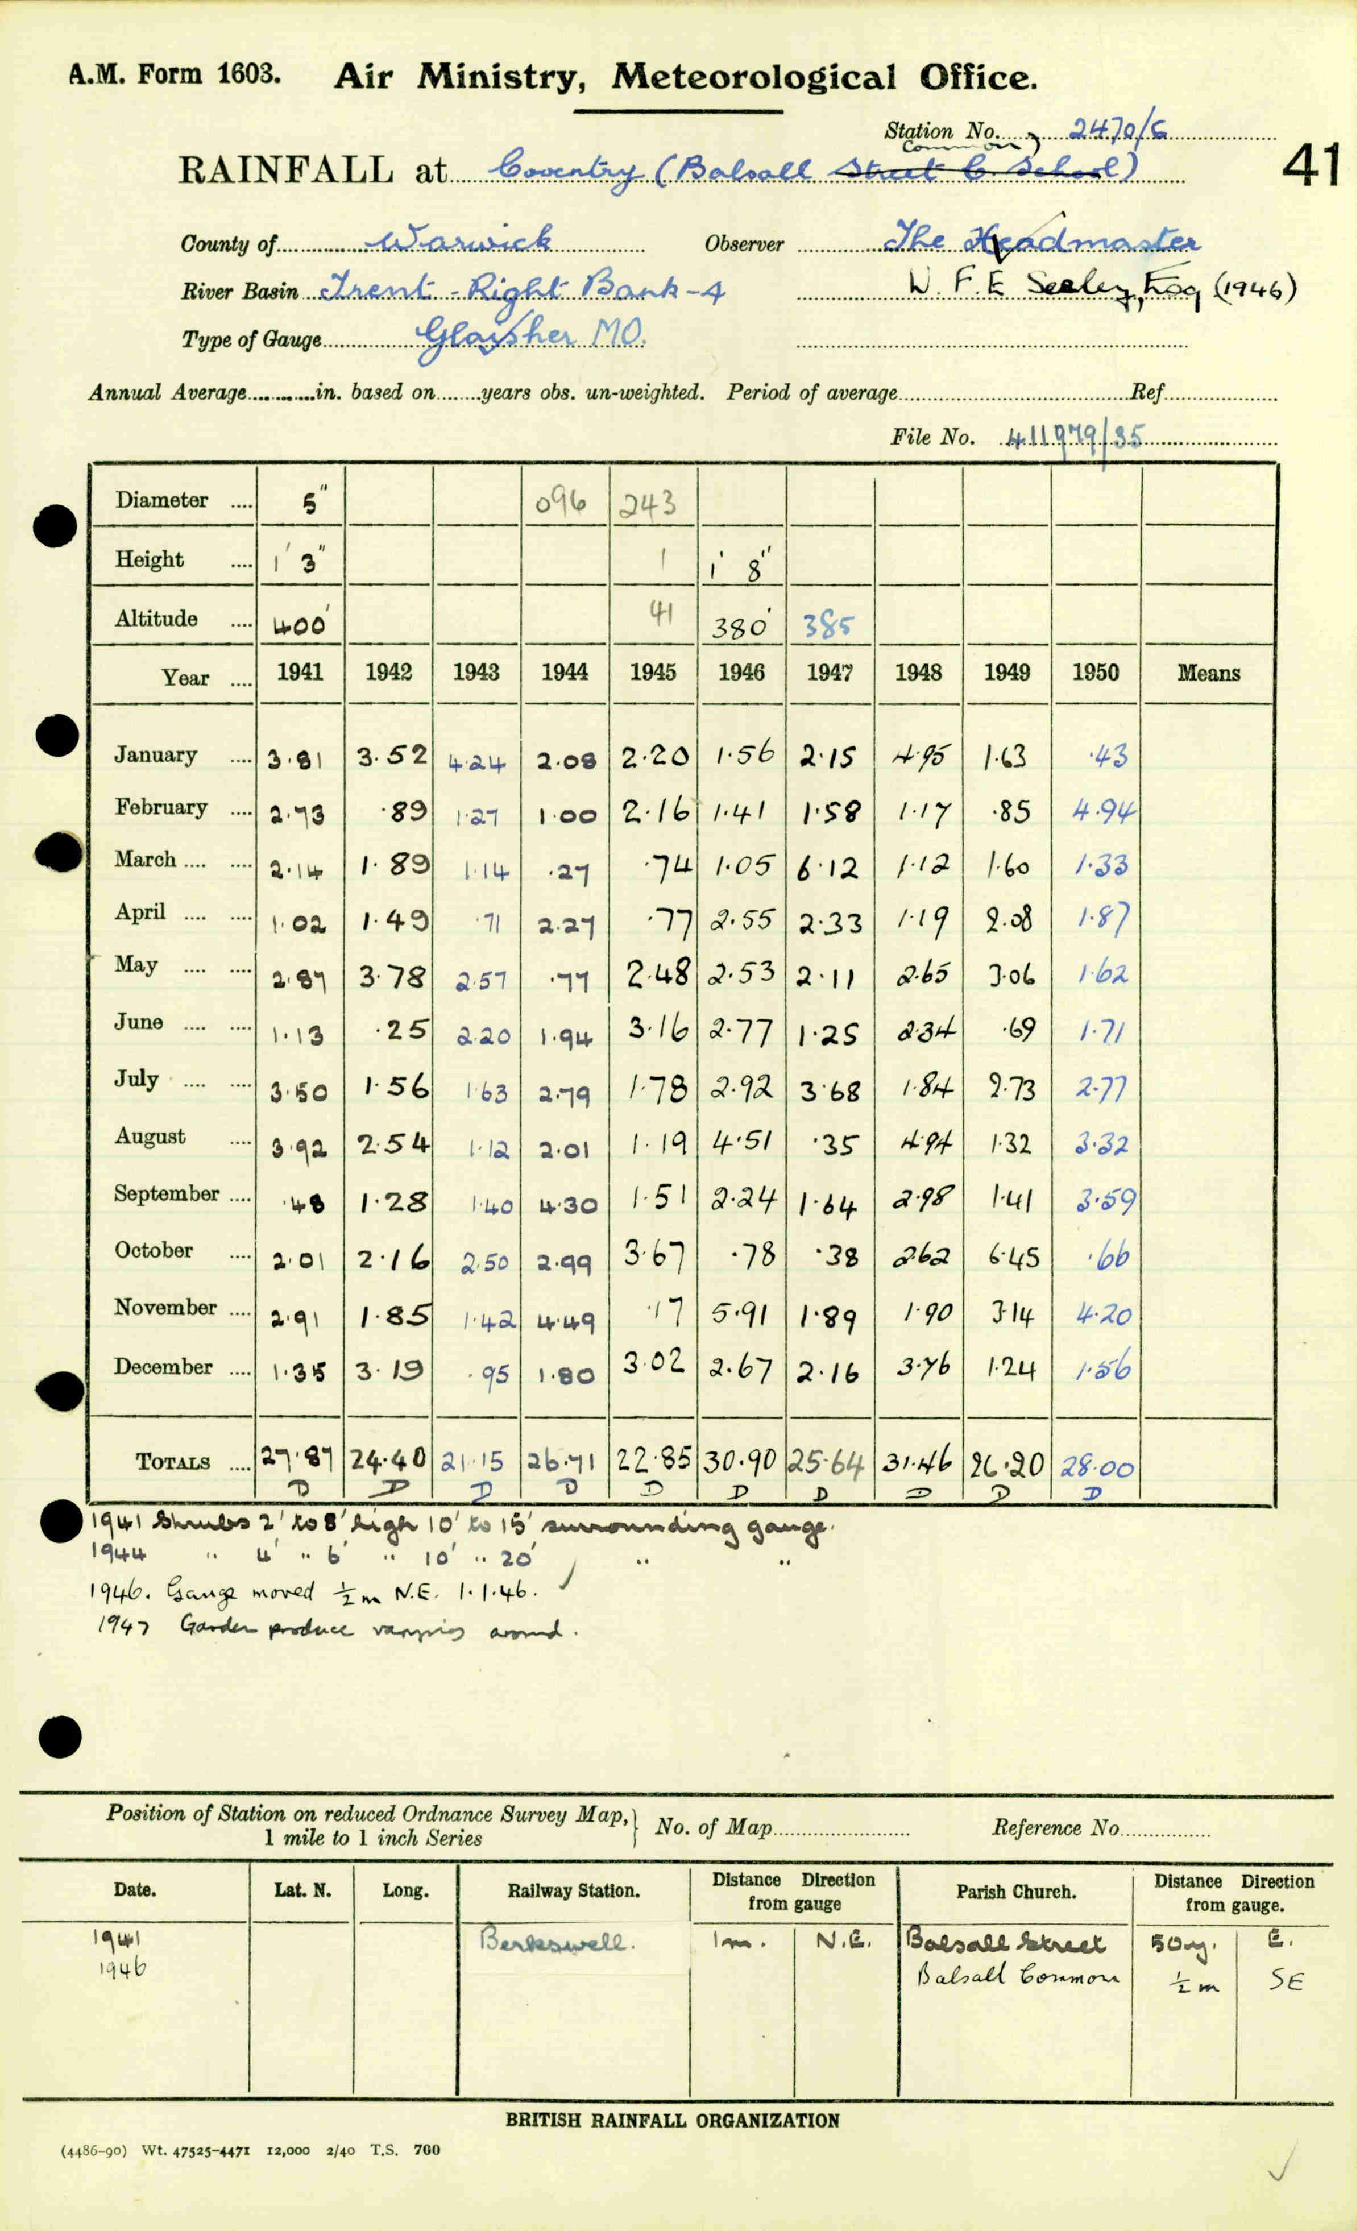 A.M. Form 1603. Air Ministry, Meteorological Office.
Station No. 2470/6
41
Common)
RAINFALL at Coventry (Balsall Street C. School)
County of Warwick Observer The Headmaster
River Basin Trent - Right Bank - 4 W. F. E Seeley, Esq (1946)
Type of Gauge Glaisher MO.
Annual Average in. based on years obs. un-weighted. Period of average Ref
File No. 411979/35
Diameter 5" 096 243
Height 1' 3" 1 1' 8"
Altitude 400' 41 380' 385
Year 1941 1942 1943 1944 1945 1946 1947 1948 1949 1950 Means
January 3.81 3.52 4.24 2.08 2.20 1.56 2.15 4.95 1.63 .43
February 2.73 .89 1.27 1.00 2.16 1.41 1.58 1.17 .85 4.94
March 2.14 1.89 1.14 .27 .74 1.05 6.12 1.12 1.60 1.33
April 1.02 1.49 .71 2.27 .77 2.55 2.33 1.19 2.08 1.87
May 2.87 3.78 2.57 .77 2.48 2.53 2.11 2.65 3.06 1.62
June 1.13 .25 2.20 1.94 3.16 2.77 1.25 2.34 .69 1.71
July 3.50 1.56 1.63 2.79 1.78 2.92 3.68 1.84 2.73 2.77
August 3.92 2.54 1.12 2.01 1.19 4.51 .35 4.94 1.32 3.32
September .48 1.28 1.40 4.30 1.51 2.24 1.64 2.98 1.41 3.59
October 2.01 2.16 2.50 2.99 3.67 .78 .38 2.62 6.45 .66
November 2.91 1.85 1.42 4.49 .17 5.91 1.89 1.90 3.14 4.20
December 1.35 3.19 .95 1.80 3.02 2.67 2.16 3.76 1.24 1.56
TOTALS 27.87 24.40 21.15 26.71 22.85 30.90 25.64 31.46 26.20 28.00
D D D D D D D D D D
1941 Shrubs 2' to 8' high 10' to 15' surrounding gauge.
1944 " 4' " 6' " 10' " 20' " "
1946. Gauge moved ½ m N.E. 1.1.46.
1947 Garden produce varying around.
Position of Station on reduced Ordnance Survey Map, 1 mile to 1 inch Series No. of Map Reference No.
Date. Lat. N. Long. Railway Station. Distance Direction from gauge Parish Church. Distance Direction from gauge.
1941 Berkswell. 1m. N.E. Balsall Street 50y. E.
1946 Balsall Common ½ m SE
BRITISH RAINFALL ORGANIZATION
(4486-90) Wt. 47525-4471 12,000 2/40 T.S. 700